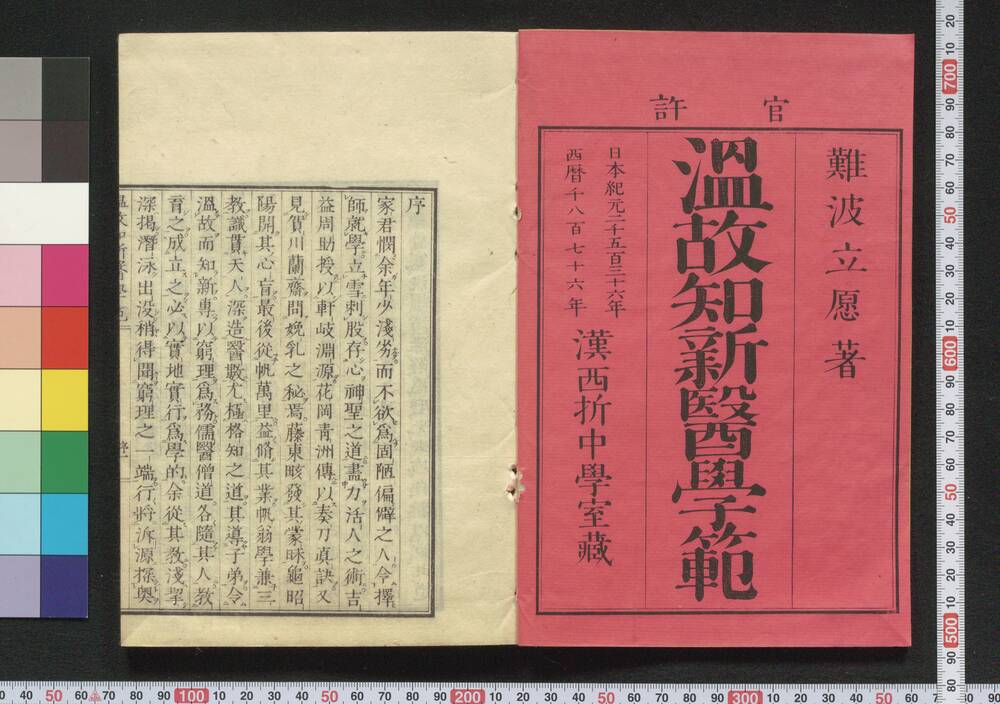 官許
難波立愿著
溫故知新醫學範
日本紀元二千五百三十六年
西曆千八百七十六年
漢西折中學室藏
序
家君憫余年少淺劣而不欲爲固陋偏僻之人令擇
師就學立雪刺股存心神聖之道盡力活人之術吉
益周助授以軒岐淵源花岡青洲傳以奏刀眞訣又
見賀川蘭齋問娩乳之秘焉藤東畡發其蒙昧龜昭
陽開其心盲最後從帆萬里益脩其業帆翁學兼三
教識貫天人深造醫數尤極格知之道其導子弟令
溫故而知新專以窮理爲務儒醫僧道各隨其人教
育之成立之必以實地實行爲學的余從其教淺挲
深揭潛泳出没稍得聞窮理之一端行將泝源探奧